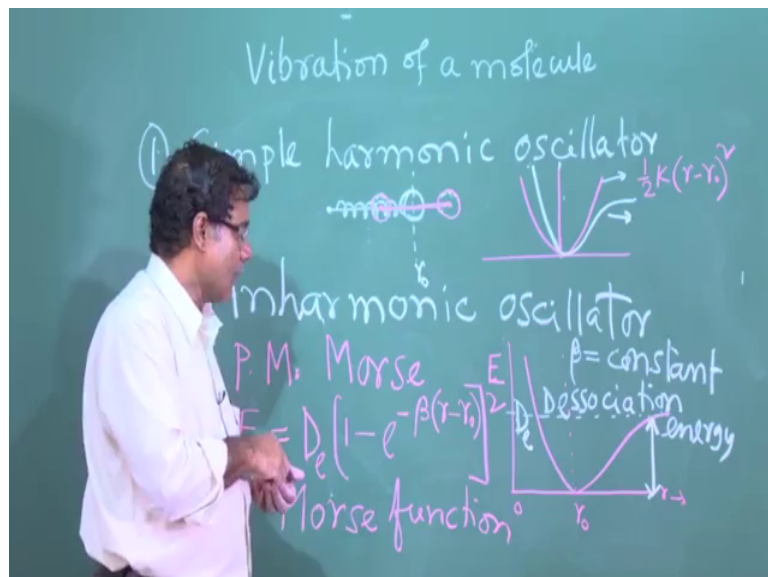 Vibration of a molecule
① Simple harmonic oscillator
½K(r-r₀)²
r₀
inharmonic oscillator
P.M. Morse
β = constant
E
Dessociation energy
Dₑ
E = Dₑ(1-e^{-β(r-r₀)}]²
Morse function
0 r₀ r→